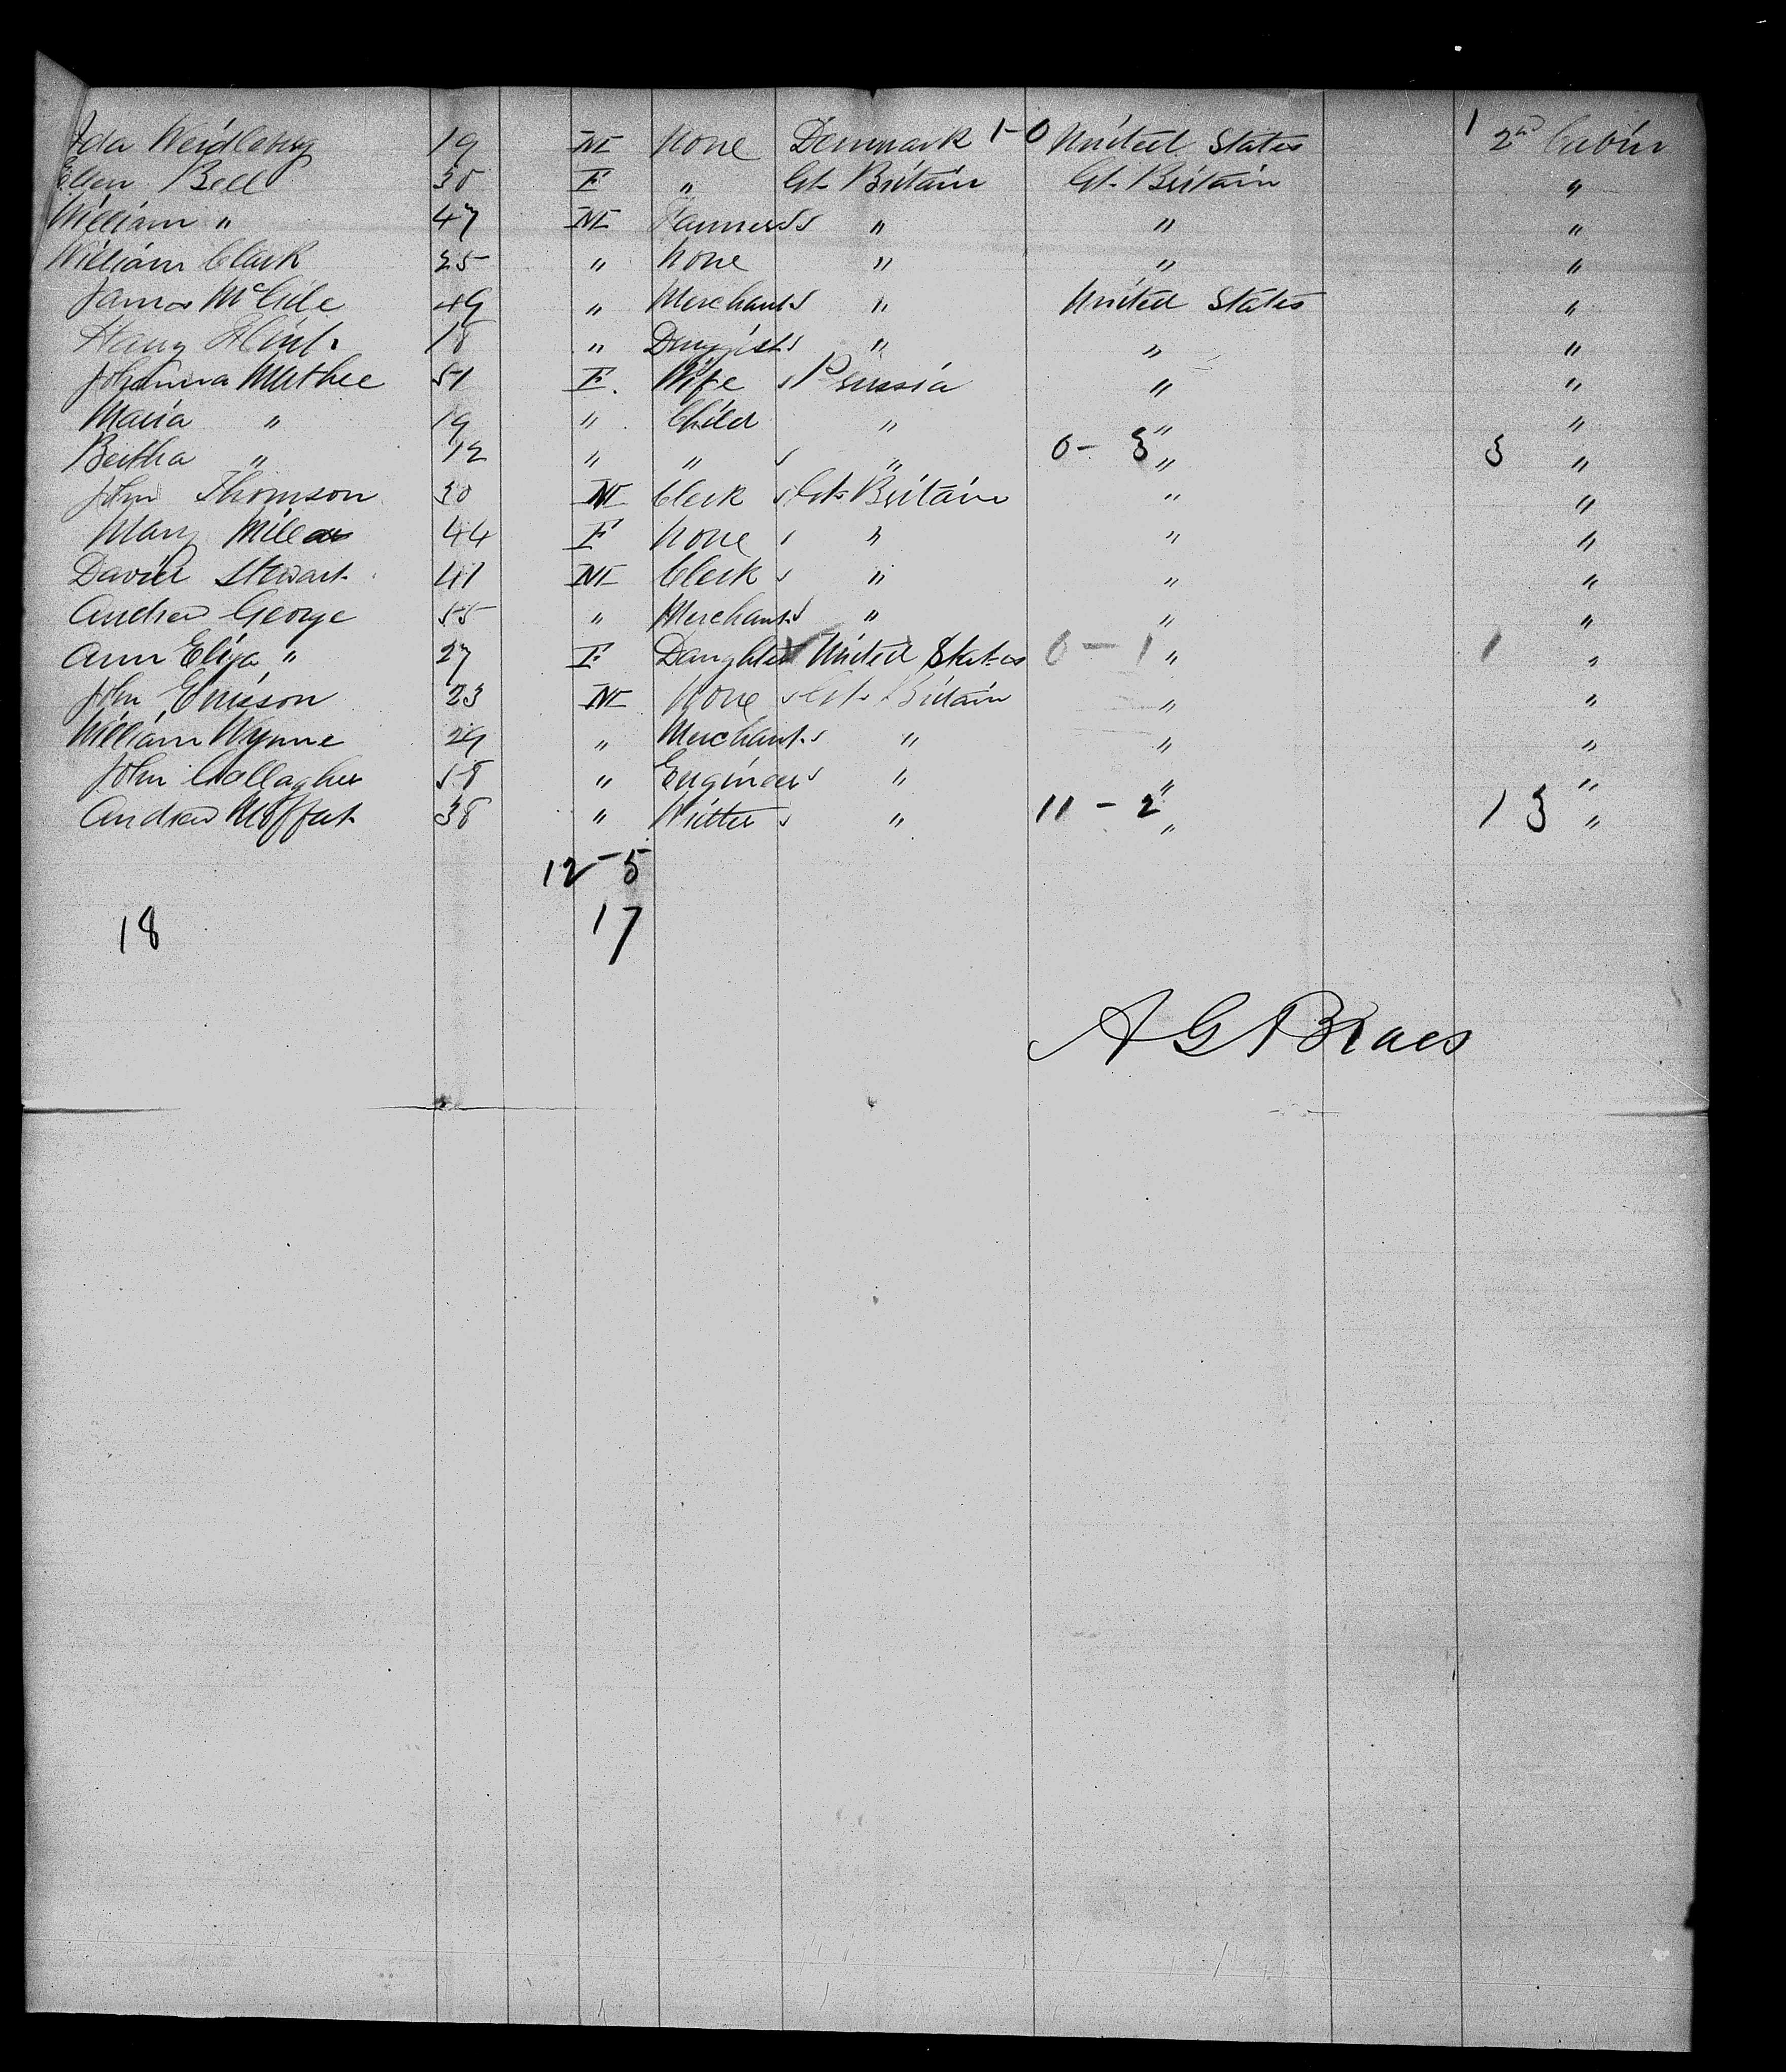 Ida Weidleng 19 M None Denmark 1-0 United States 1 2nd Cabin
Ellen Bell 30 F " Gt. Britain Gt. Britain "
William " 47 M Farmer " " "
William Clark 25 " None " " "
James McCide 49 " Merchant " United States "
Harry Flint 18 " Druggist " " "
Johanna Muthee 51 F. Wife Prussia " "
Maria " 19 " Child " " "
Bertha " 12 " " " 0-3 " 3 "
John Thomson 30 M Clerk Gt. Britain " "
Mary Millar 44 F None " " "
David Stewart 41 M Clerk " " "
Andrew George 55 " Merchant " " "
Ann Eliza " 27 F Daughter United States 0-1 " 1 "
John 23 M None Gt. Britain " "
William Wynne 29 " Merchant " " "
John Gallagher 58 " Engineer " " "
Andrew Moffat 38 " Writer " 11-2 " 13 "
12-5
18 17
A G Braes